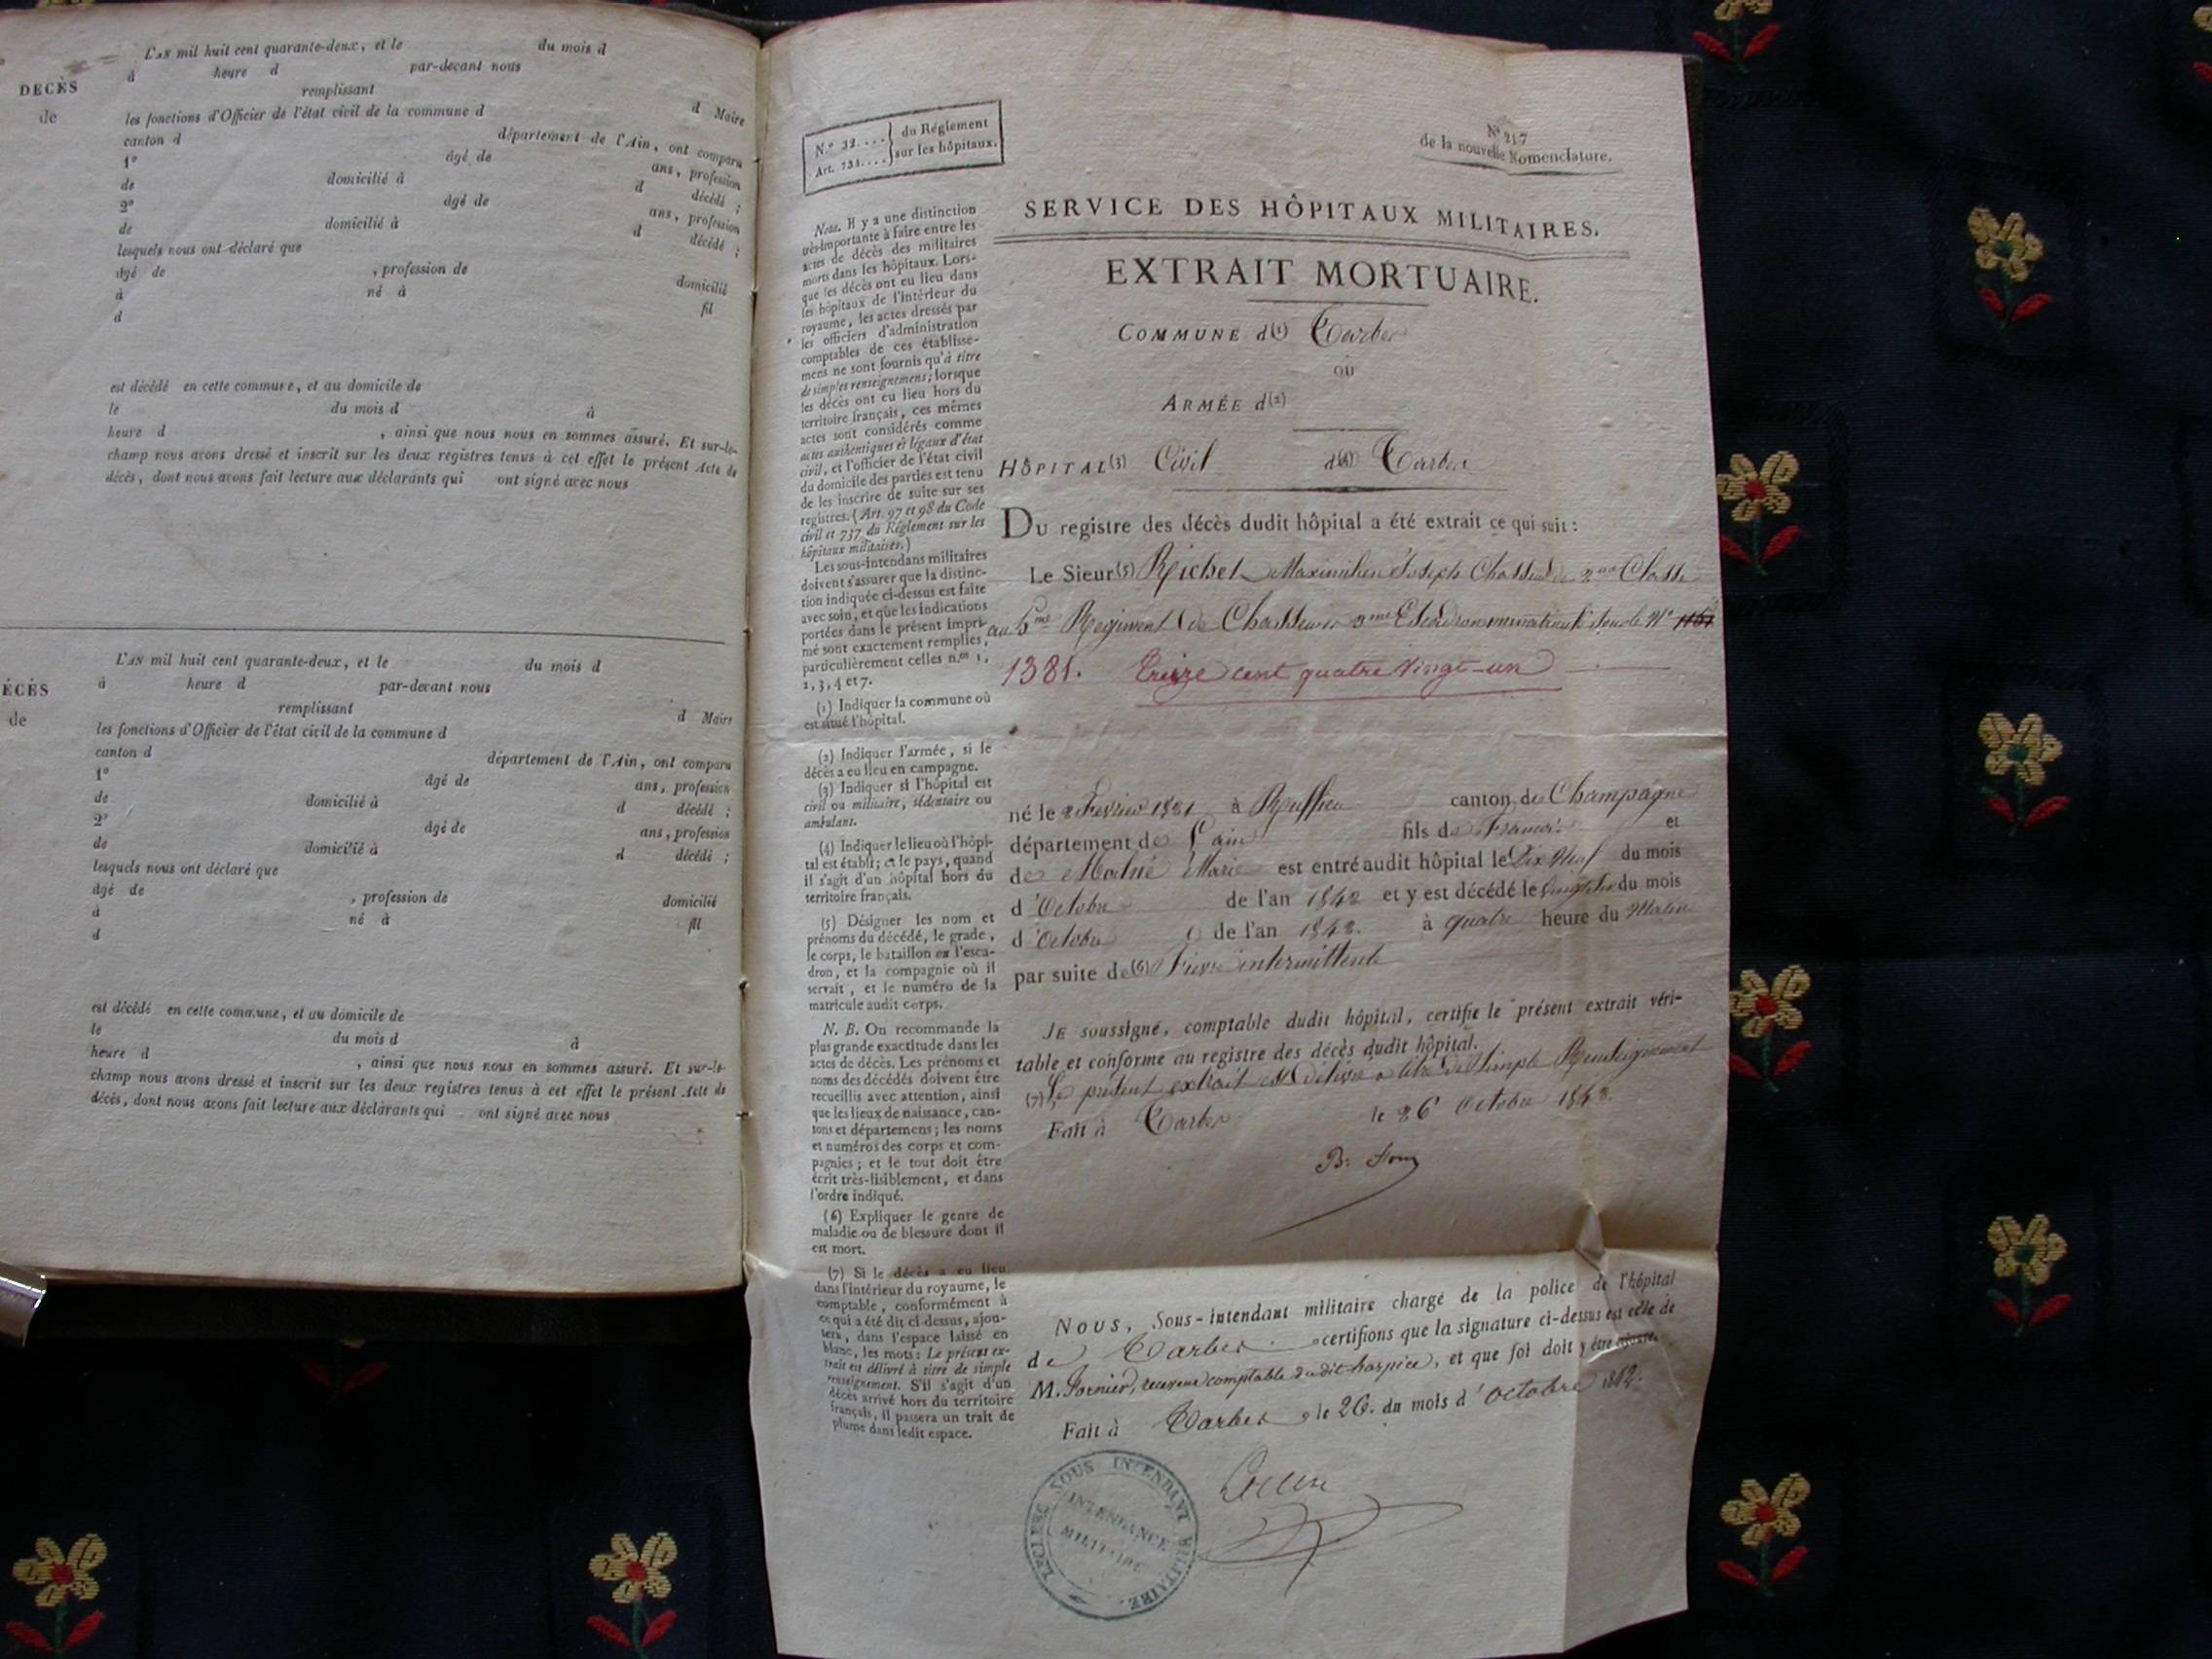 L'AN mil huit cent quarante-deux, et le du mois d
à heure d par-devant nous
DECÈS
remplissant
de
d Maire
les fonctions d'Officier de l'état civil de la commune d
canton d département de l'Ain, ont comparu
1º âgé de ans, profession
de domicilié à d décédé ;
2º âgé de ans, profession
de domicilié à d décédé ;
lesquels nous ont déclaré que
âgé de , profession de domicilié
à né à fil
d
est décédé en cette commune, et au domicile de
le du mois d à
heure d , ainsi que nous nous en sommes assuré. Et sur-le-
champ nous avons dressé et inscrit sur les deux registres tenus à cet effet le présent Acte de
décès, dont nous avons fait lecture aux déclarants qui ont signé avec nous
L'AN mil huit cent quarante-deux, et le du mois d
à heure d par-devant nous
ÉCÈS
remplissant
de
d Maire
les fonctions d'Officier de l'état civil de la commune d
canton d département de l'Ain, ont comparu
1º âgé de ans, profession
de domicilié à d décédé ;
2º âgé de ans, profession
de domicilié à d décédé ;
lesquels nous ont déclaré que
âgé de , profession de domicilié
à né à fil
d
est décédé en cette commune, et au domicile de
le du mois d à
heure d , ainsi que nous nous en sommes assuré. Et sur-le-
champ nous avons dressé et inscrit sur les deux registres tenus à cet effet le présent Acte de
décès, dont nous avons fait lecture aux déclarants qui ont signé avec nous
N.º 32.... du Réglement
Art. 734.... sur les hôpitaux.
Nota. Il y a une distinction
très-importante à faire entre les
actes de décès des militaires
morts dans les hôpitaux. Lors-
que les décès ont eu lieu dans
les hôpitaux de l'intérieur du
royaume, les actes dressés par
les officiers d'administration
comptables de ces établisse-
mens ne sont fournis qu'à titre
de simples renseignemens; lorsque
les décès ont eu lieu hors du
territoire français, ces mêmes
actes sont considérés comme
actes authentiques et légaux d'état
civil, et l'officier de l'état civil
du domicile des parties est tenu
de les inscrire de suite sur ses
registres. (Art. 97 et 98 du Code
civil et 737 du Réglement sur les
hôpitaux militaires.)
Les sous-intendans militaires
doivent s'assurer que la distinc-
tion indiquée ci-dessus est faite
avec soin, et que les indications
portées dans le présent impri-
mé sont exactement remplies,
particulièrement celles n.os 1,
2, 3, 4 et 7.
(1) Indiquer la commune où
est situé l'hôpital.
(2) Indiquer l'armée, si le
décès a eu lieu en campagne.
(3) Indiquer si l'hôpital est
civil ou militaire, sédentaire ou
ambulant.
(4) Indiquer le lieu où l'hôpi-
tal est établi; et le pays, quand
il s'agit d'un hôpital hors du
territoire français.
(5) Désigner les nom et
prénoms du décédé, le grade,
le corps, le bataillon ou l'esca-
dron, et la compagnie où il
servait, et le numéro de la
matricule audit corps.
N. B. On recommande la
plus grande exactitude dans les
actes de décès. Les prénoms et
noms des décédés doivent être
recueillis avec attention, ainsi
que les lieux de naissance, can-
tons et départemens; les noms
et numéros des corps et com-
pagnies; et le tout doit être
écrit très-lisiblement, et dans
l'ordre indiqué.
(6) Expliquer le genre de
maladie ou de blessure dont il
est mort.
(7) Si le décès a eu lieu
dans l'intérieur du royaume, le
comptable, conformément à
ce qui a été dit ci-dessus, ajou-
tera, dans l'espace laissé en
blanc, les mots: Le présent ex-
trait est délivré à titre de simple
renseignement. S'il s'agit d'un
décès arrivé hors du territoire
français, il passera un trait de
plume dans ledit espace.
Nº 217
de la nouvelle Nomenclature.
SERVICE DES HÔPITAUX MILITAIRES.
EXTRAIT MORTUAIRE.
COMMUNE d(1) Tarbes
ou
ARMÉE d(2)
HÔPITAL(3) Civil d(4) Tarbes
Du registre des décès dudit hôpital a été extrait ce qui suit :
Le Sieur(5) Richel Maximilien Joseph Chasseur de 2me Classe
au 5me Regiment de Chasseurs 3me Escadron immatriculé sous le Nº
1381. treize cent quatre vingt-un
né le 2 Fevrier 1821 à Ruffieu canton de Champagne
département de l'ain fils de Francois et
de Marie est entré audit hôpital le Dix Neuf du mois
d'Octobre de l'an 1842 et y est décédé le du mois
d'Octobre de l'an 1842. à quatre heure du Matin
par suite de(6) Fievre intermittente
JE soussigné, comptable dudit hôpital, certifie le présent extrait véri-
table et conforme au registre des décès dudit hôpital.
(7) Le présent extrait est délivré a titre de Simple Renseignement
Fait à Tarbes le 26 Octobre 1842.
NOUS, Sous-intendant militaire chargé de la police de l'hôpital
de Tarbes certifions que la signature ci-dessus est celle de
M. Fornier, receveur comptable dudit hospice, et que foi doit y être ajoutée.
Fait à Tarbes, le 26. du mois d'octobre 1842.
SOUS INTENDANT MILITAIRE
INTENDANCE
MILITAIRE